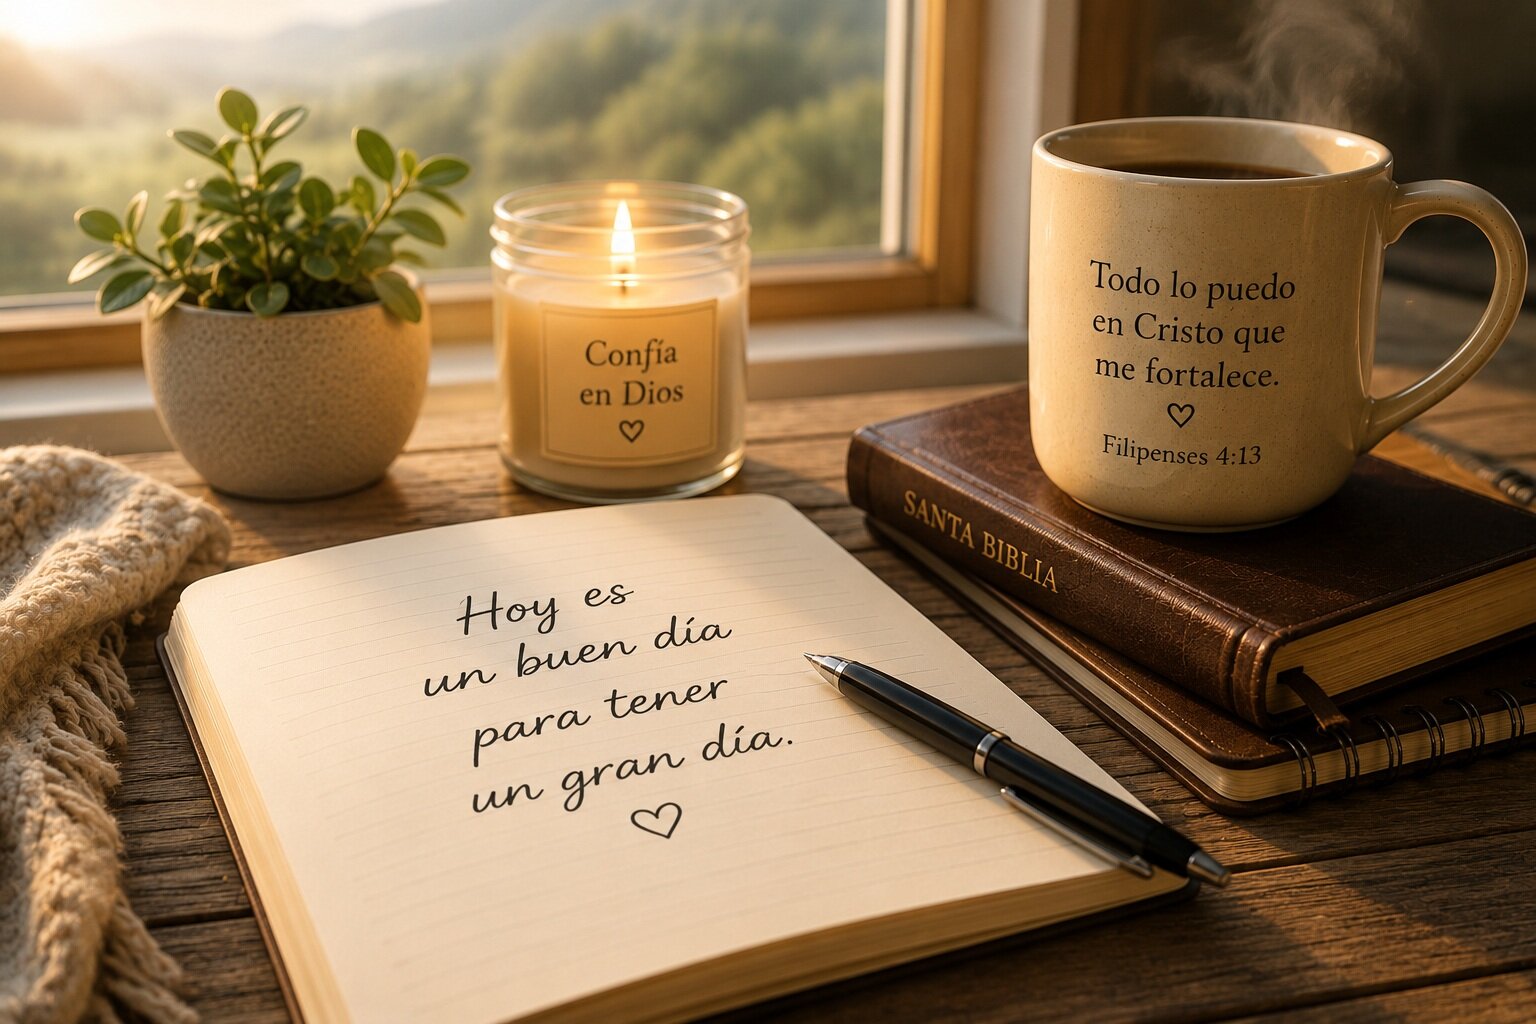 Confía
en Dios
Todo lo puedo
en Cristo que
me fortalece.
Filipenses 4:13
SANTA BIBLIA
Hoy es
un buen día
para tener
un gran día.